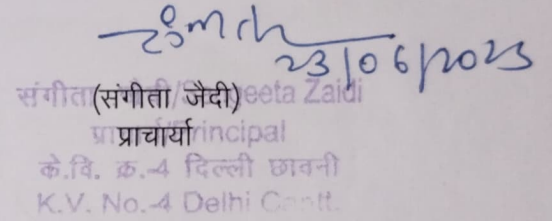 23/06/2023
संगीता (संगीता जैदी)/Sangeeta Zaidi
प्राचार्या/Principal
के.वि. क्र.-4 दिल्ली छावनी
K.V. No.-4 Delhi Cantt.